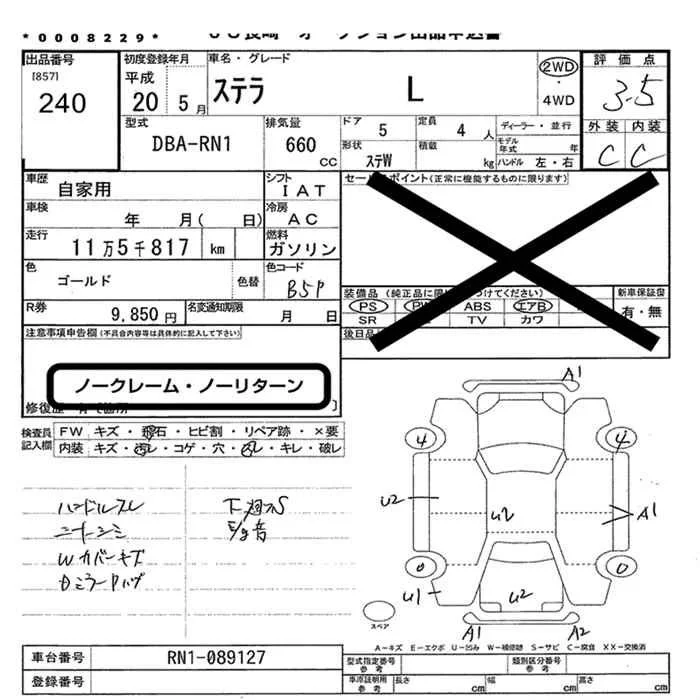 *0008229*
出品番号
[857]
240
初度登録年月
平成
20 5月
車名・グレード
ステラ L
2WD
・
4WD
評価点
3.5
外装 内装
C C
型式
DBA-RN1
排気量
660
cc
ドア
5
定員
4 人
ディーラー・並行
モデル年式 年
形状
ステW
積載
kg
ハンドル 左・右
車歴
自家用
シフト
IAT
車検
年 月( 日)
冷房
AC
走行
11万5千817 km
燃料
ガソリン
色
ゴールド
色替
色コード
B5P
R券
9,850円
名変通知期限
月 日
セールスポイント(正常に機能するものに限ります)
PS ABS エアB
SR TV カワ
新車保証書
有・無
注意事項申告欄(不具合内容等は具体的に記入して下さい)
ノークレーム・ノーリターン
検査員記入欄
FW キズ・飛石・ヒビ割・リペア跡・×要
内装 キズ・汚レ・コゲ・穴・凹レ・キレ・破レ
ハンドルスレ
シートシミ
Wカバーキズ
下廻りS
E/g音
A1
4 4
U2 U2 A1
0 0
U1 U2
A1 A2
スペア
A-キズ E-エクボ U-凹み W-補修跡 S-サビ C-腐食 XX-交換済
車台番号 RN1-089127
登録番号
型式指定番号
参考
類別区分番号
参考
車庫証明用
参考
長さ cm 幅 cm 高さ cm